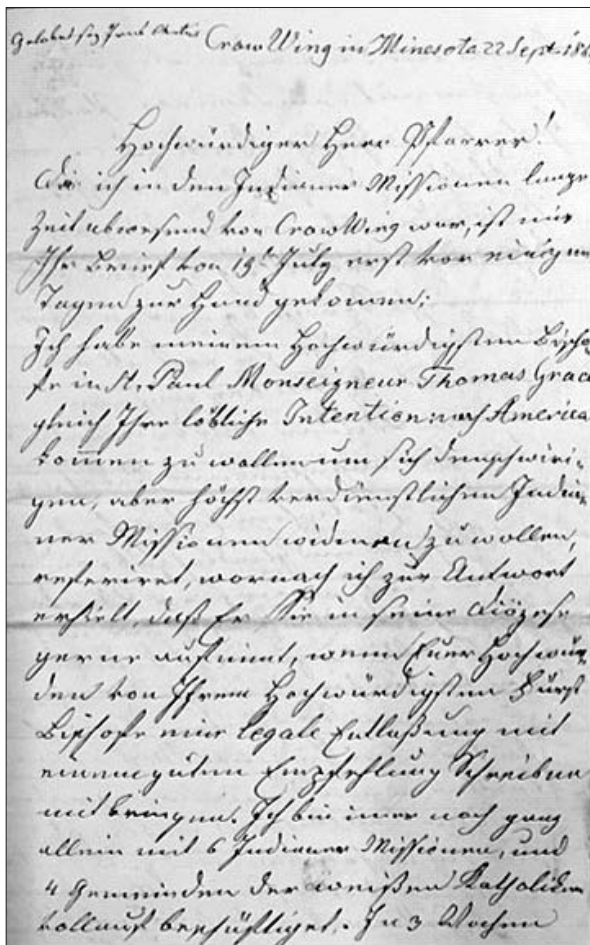 Gelobt sey Jesus Christus
CrowWing in Minesota 22 Sept. 186
Hochwürdiger Herr Pfarrer!
Da ich in den Indianer Missionen lange
Zeit abwesend von CrowWing war, ist mir
Ihr Brief von 19t July erst vor einigen
Tagen zur Hand gekommen;
Ich habe meinem Hochwürdigsten Bischo
fe in St. Paul Monseigneur Thomas Grace
gleich Ihre löbliche Intention: nach America
kommen zu wollen um sich den schwieri-
gen, aber höchst verdienstlichen India-
ner Missionen widmen zu wollen,
referiret, wornach ich zur Antwort
erhielt, daß Er Sie in seine Diözese
gerne aufnimt, wenn Euer Hochwür-
den von Ihrem Hochwürdigsten Fürst
Bischofe eine legale Entlaßung mit
einem guten Empfehlung Schreiben
mitbringen. Ich bin imer noch ganz
allein mit 6 Indianer Missionen, und
4 Gemeinden der weißen Katholiken
vollauf beschäftiget. In 3 Wochen